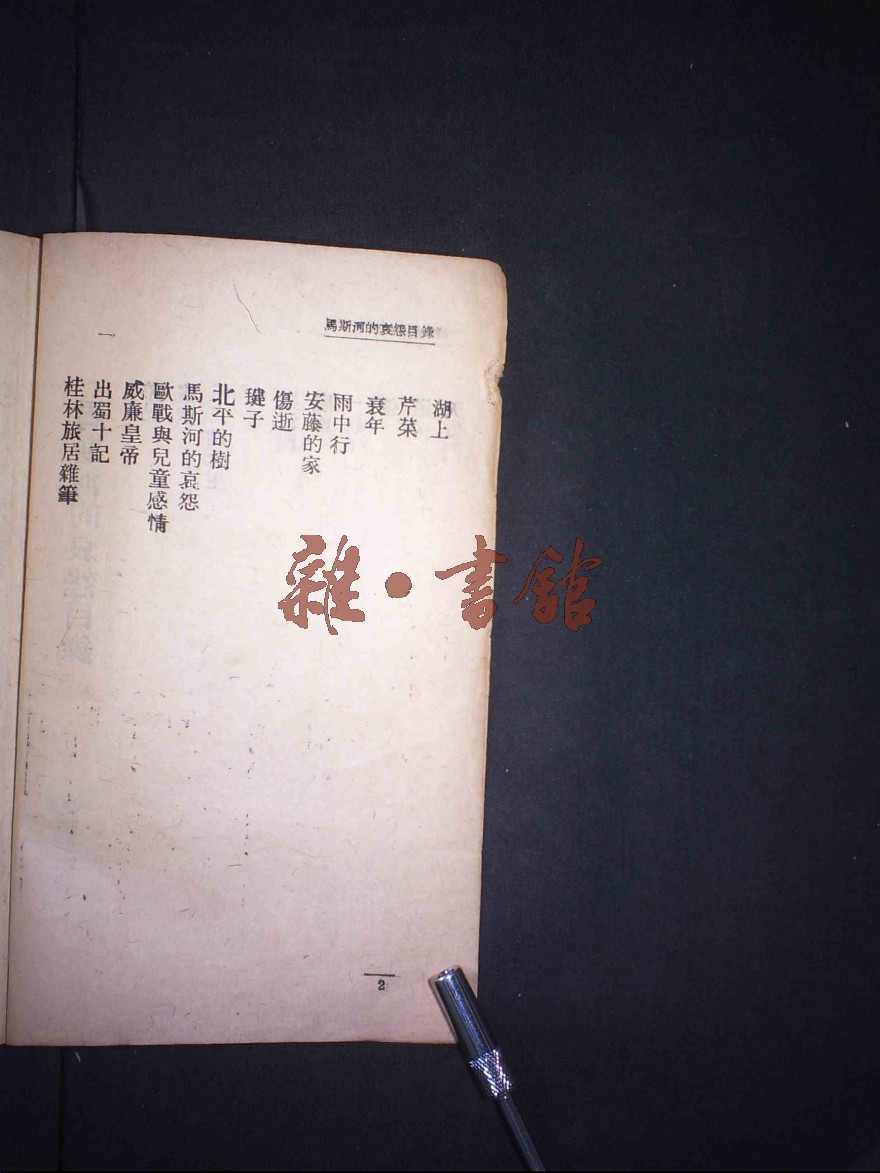 馬斯河的哀怨目錄
湖上
芹菜
衰年
雨中行
安藤的家
傷逝
毽子
北平的樹
馬斯河的哀怨
歐戰與兒童感情
威廉皇帝
出蜀十記
桂林旅居雜筆
一
2
雜·書館